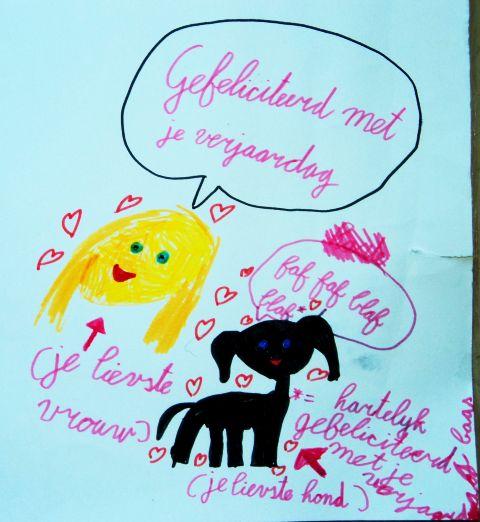 Gefeliciteerd met
je verjaardag
faf faf blaf
blaf *
(je lievste
vrouw)
*= hartelyk
gefeliciteerd
met je
verjaar
baas
(je lievste hond)